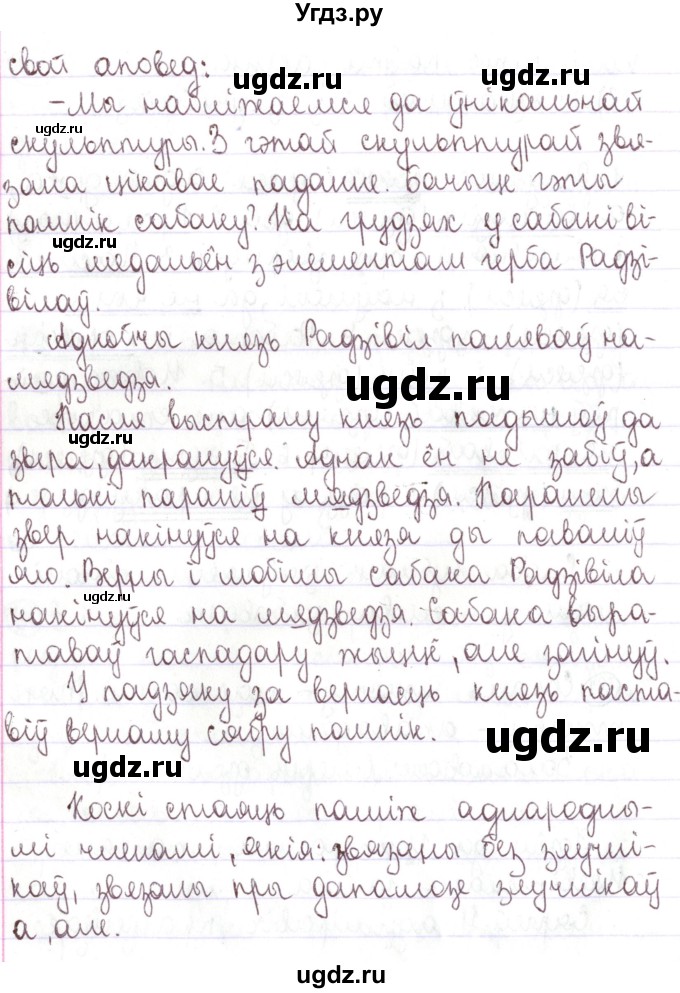 Угдз.ру
свой аповед:
ugdz.ru
ugdz.ru
-Мы набліжаемся да ўнікальнай
ugdz.ru
скульптуры. З гэтай скульптурай звя-
зана цікавае паданне. Бачыце гэты
помнік сабаку? На грудзях у сабакі ві-
ugdz.ru
сіць медальён з элементам герба Радзі-
вілаў.
Аднойчы князь Радзівіл паляваў на-
мядзведзя
ugdz.ru
ugdz.ru
Пасля выстралу князь падышоў да
ugdz.ru
звера, дакрануўся. Аднак ён не забіў, а
толькі параніў мядзведзя. Паранены
звер накінуўся на князя ды паваліў
яго. Верны і любімы сабака Радзівіла
ugdz.ru
накінуўся на мядзведзя. Сабака выра-
таваў гаспадару жыццё, але загінуў.
У падзяку за вернасць князь паста-
віў вернаму сябру помнік.
ugdz.ru
ugdz.ru
Коскі стаяць паміж аднародны-
мі членамі, якія: звязаны без злучні-
каў, звязаны пры дапамозе злучнікаў
а, але.
ugdz.ru